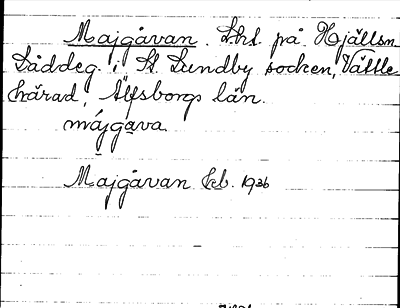 Majgåvan. Lht. på Hjällsn
Säddeg. i St. Lundby socken, Vättle
härad, Älfsborgs län.
májgava
Majgåvan Kb. 1936